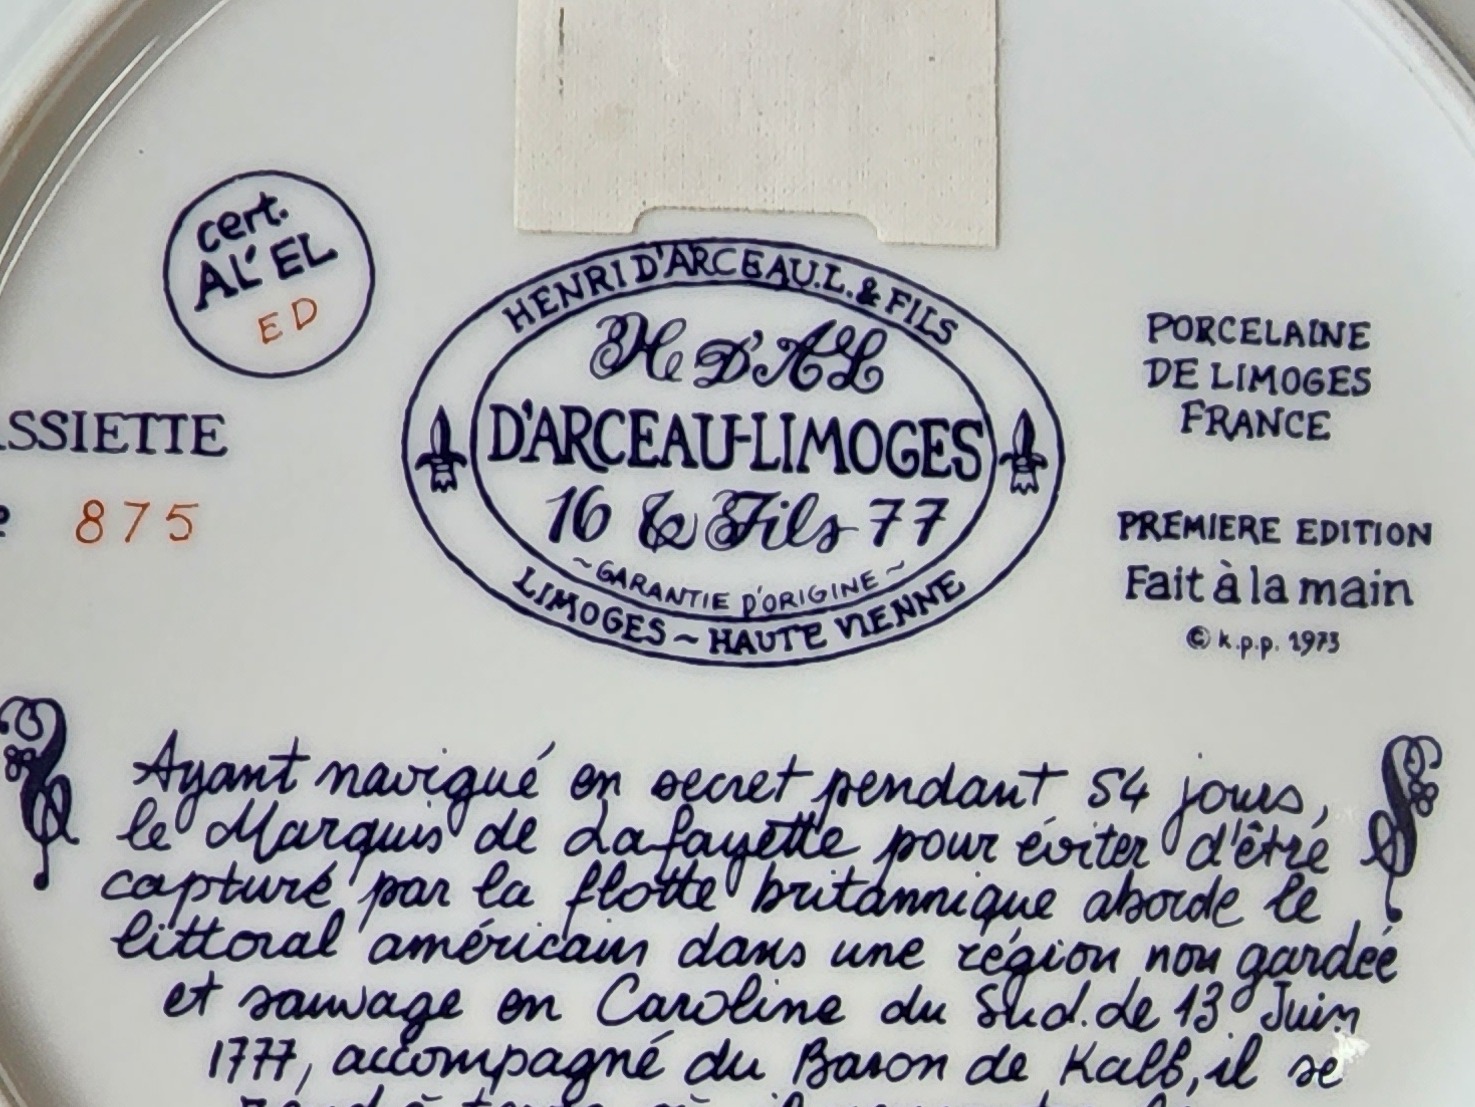 cert.
AL'EL
ED
SSIETTE
875
HENRI D'ARCEAU.L. & FILS
H D'AL
D'ARCEAU-LIMOGES
16 & Fils 77
~ GARANTIE D'ORIGINE ~
LIMOGES ~ HAUTE VIENNE
PORCELAINE
DE LIMOGES
FRANCE
PREMIERE EDITION
Fait à la main
© k.p.p. 1973
Ayant navigué en secret pendant 54 jours,
le Marquis de Lafayette pour éviter d'être
capturé par la flotte britannique aborde le
littoral américain dans une région non gardée
et sauvage en Caroline du Sud. de 13 Juin
1777, accompagné du Baron de Kalb, il se